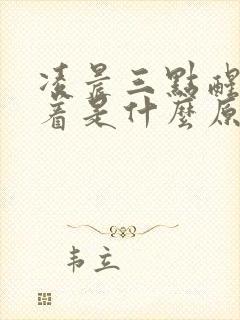 凌晨三點醒
着是什麼原
韦立